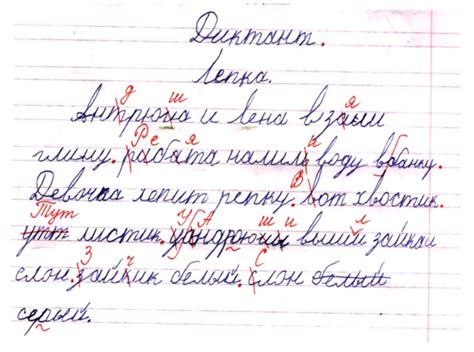 Диктант.
Лепка.
Антрюша и лена взали
глину. рабата налиль воду вбанку.
Девочка лепит репку. вот хвостик.
Тут листик. уандрюши вышли зайка и
слон. зайчик белый. слон белый
серый.